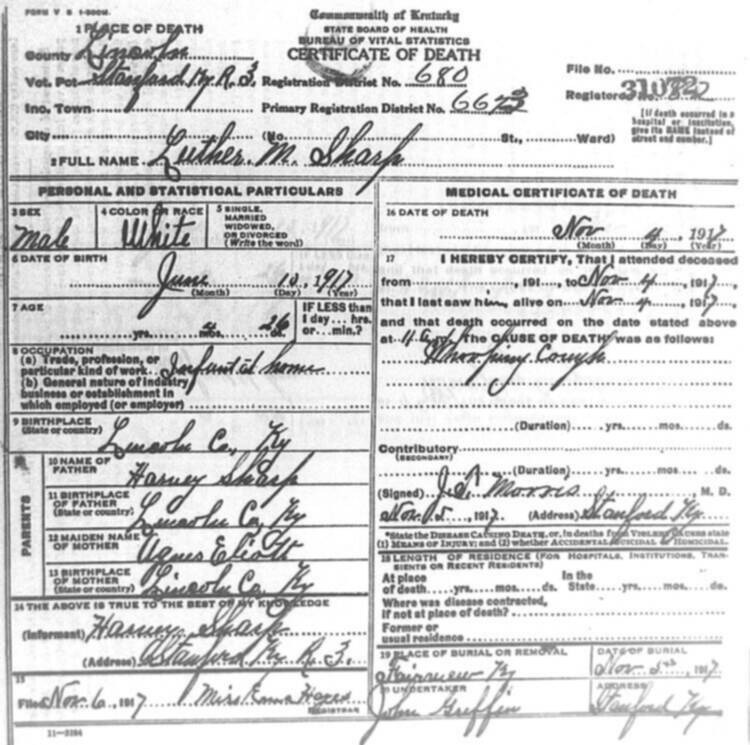 FORM V S 1-500M.
Commonwealth of Kentucky
STATE BOARD OF HEALTH
BUREAU OF VITAL STATISTICS
CERTIFICATE OF DEATH
1 PLACE OF DEATH
County Lincoln
Vot. Pct. Stanford Ky R. 3. Registration District No. 680
File No.
Inc. Town Primary Registration District No.
Registered No.
[If death occurred in a hospital or institution, give its NAME instead of street and number.]
City (No. St., Ward)
2 FULL NAME Luther. M. Sharp
PERSONAL AND STATISTICAL PARTICULARS
3 SEX
Male
4 COLOR OR RACE
White
5 SINGLE,
MARRIED
WIDOWED,
OR DIVORCED
(Write the word)
6 DATE OF BIRTH
June 10, 1917
(Month) (Day) (Year)
7 AGE
yrs. 4 mos. ds.
IF LESS than
1 day... hrs.
or... min.?
8 OCCUPATION
(a) Trade, profession, or
particular kind of work Infant at home
(b) General nature of industry
business or establishment in
which employed (or employer)
9 BIRTHPLACE
(State or country)
Lincoln Co, Ky
PARENTS
10 NAME OF
FATHER
Harvey Sharp
11 BIRTHPLACE
OF FATHER
(State or country)
Lincoln Co, Ky
12 MAIDEN NAME
OF MOTHER
Agnes Eliott
13 BIRTHPLACE
OF MOTHER
(State or country)
Lincoln Co, Ky
14 THE ABOVE IS TRUE TO THE BEST OF MY KNOWLEDGE
(Informant) Harvey Sharp
(Address) Stanford Ky R. 3.
15
Filed Nov. 6, 1917 Miss Emma
REGISTRAR
11-3184
MEDICAL CERTIFICATE OF DEATH
16 DATE OF DEATH
Nov 4, 1917
(Month) (Day) (Year)
17 I HEREBY CERTIFY, That I attended deceased
from , 191 , to Nov 4, 1917,
that I last saw him alive on Nov 4, 1917
and that death occurred on the date stated above
at 11 a m. The CAUSE OF DEATH was as follows:
Whooping Cough
(Duration) yrs. mos. ds.
Contributory
(SECONDARY)
(Duration) yrs. mos. ds.
(Signed) Morris M. D.
Nov. 5, 1917 (Address) Stanford Ky.
*State the DISEASE CAUSING DEATH, or, in deaths from VIOLENT CAUSES state
(1) MEANS OF INJURY; and (2) whether ACCIDENTAL, SUICIDAL or HOMICIDAL.
18 LENGTH OF RESIDENCE (FOR HOSPITALS, INSTITUTIONS, TRAN-
SIENTS OR RECENT RESIDENTS)
At place In the
of death yrs. mos. ds. State yrs. mos. ds.
Where was disease contracted,
if not at place of death?
Former or
usual residence
19 PLACE OF BURIAL OR REMOVAL
Fairview Ky
DATE OF BURIAL
Nov 5th 1917
20 UNDERTAKER
John Griffin
ADDRESS
Stanford Ky